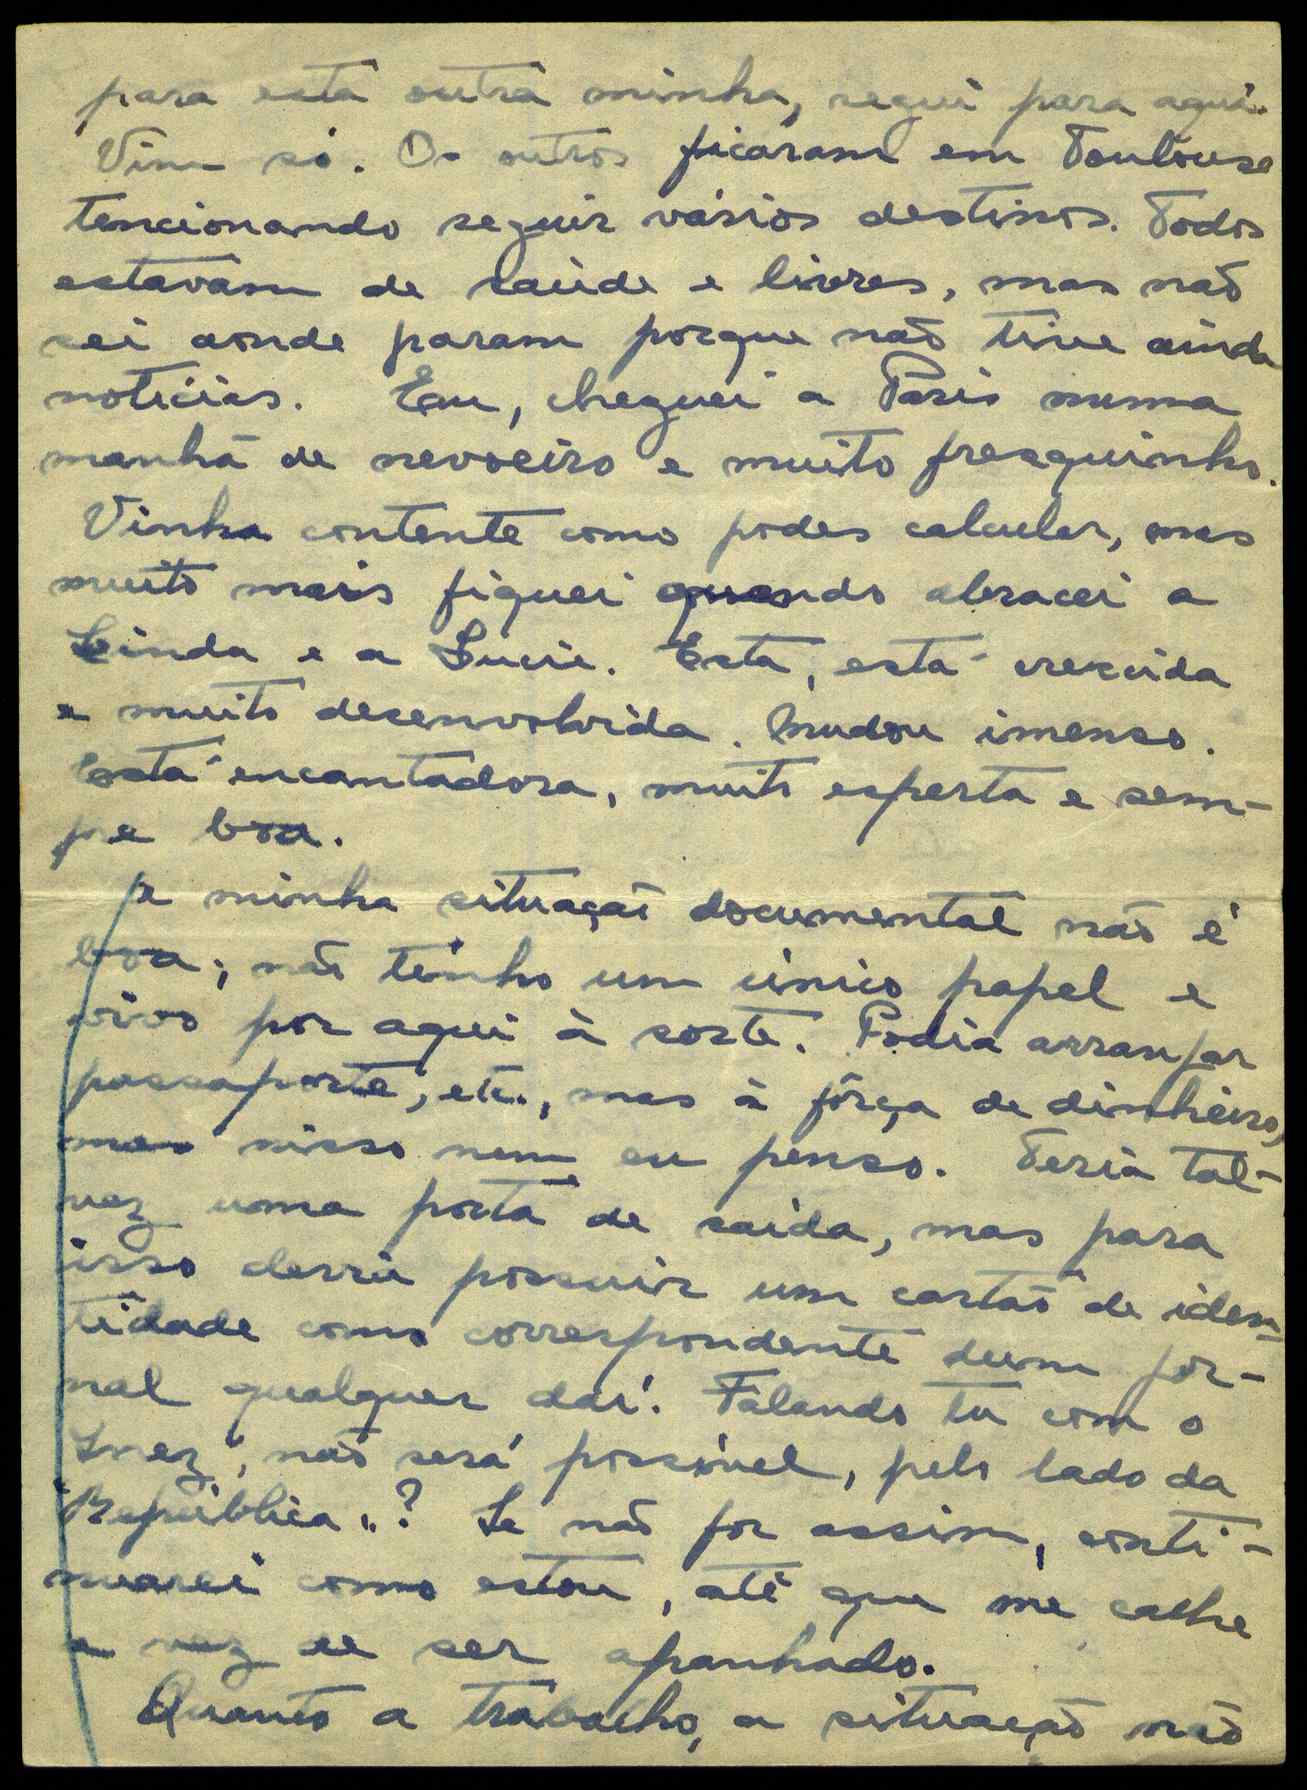 para esta outra minha, segui para aqui.
Vim só. Os outros ficaram em Toulouse
tencionando seguir vários destinos. Todos
estavam de saúde e livres, mas não
sei aonde param porque não tive ainda
notícias. Eu, cheguei a Paris numa
manhã de nevoeiro e muito fresquinho.
Vinha contente como podes calcular, mas
muito mais fiquei quando abracei a
Linda e a Lucie. Esta, está crescida
e muito desenvolvida. Mudou imenso.
Está encantadora, muito esperta e sem-
pre boa.
A minha situação documental não é
boa; não tenho um único papel e
vivo por aqui à sorte. Podia arranjar
passaporte, etc., mas à fôrça de dinheiro,
mas nisso nem eu penso. Teria tal-
vez uma porta de saída, mas para
isso devia possuir um cartão de iden-
tidade como correspondente dum jor-
nal qualquer daí. Falando tu com o
Inez, não será possível, pelo lado da
"República"? Se não for assim, conti-
nuarei como estou, até que me calhe
a vez de ser apanhado.
Quanto a trabalho, a situação não